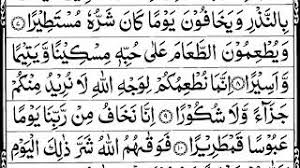 بِالنَّذْرِ وَيَخَافُونَ يَوْمًا كَانَ شَرُّهٗ مُسْتَطِيْرًا ﴿٧﴾
وَيُطْعِمُونَ الطَّعَامَ عَلٰى حُبِّهٖ مِسْكِيْنًا وَّيَتِيْمًا
وَّاَسِيْرًا ﴿٨﴾ اِنَّمَا نُطْعِمُكُمْ لِوَجْهِ اللّٰهِ لَا نُرِيْدُ مِنْكُمْ
جَزَآءً وَّلَا شُكُوْرًا ﴿٩﴾ اِنَّا نَخَافُ مِنْ رَّبِّنَا يَوْمًا
عَبُوْسًا قَمْطَرِيْرًا ﴿١٠﴾ فَوَقٰىهُمُ اللّٰهُ شَرَّ ذٰلِكَ الْيَوْمِ